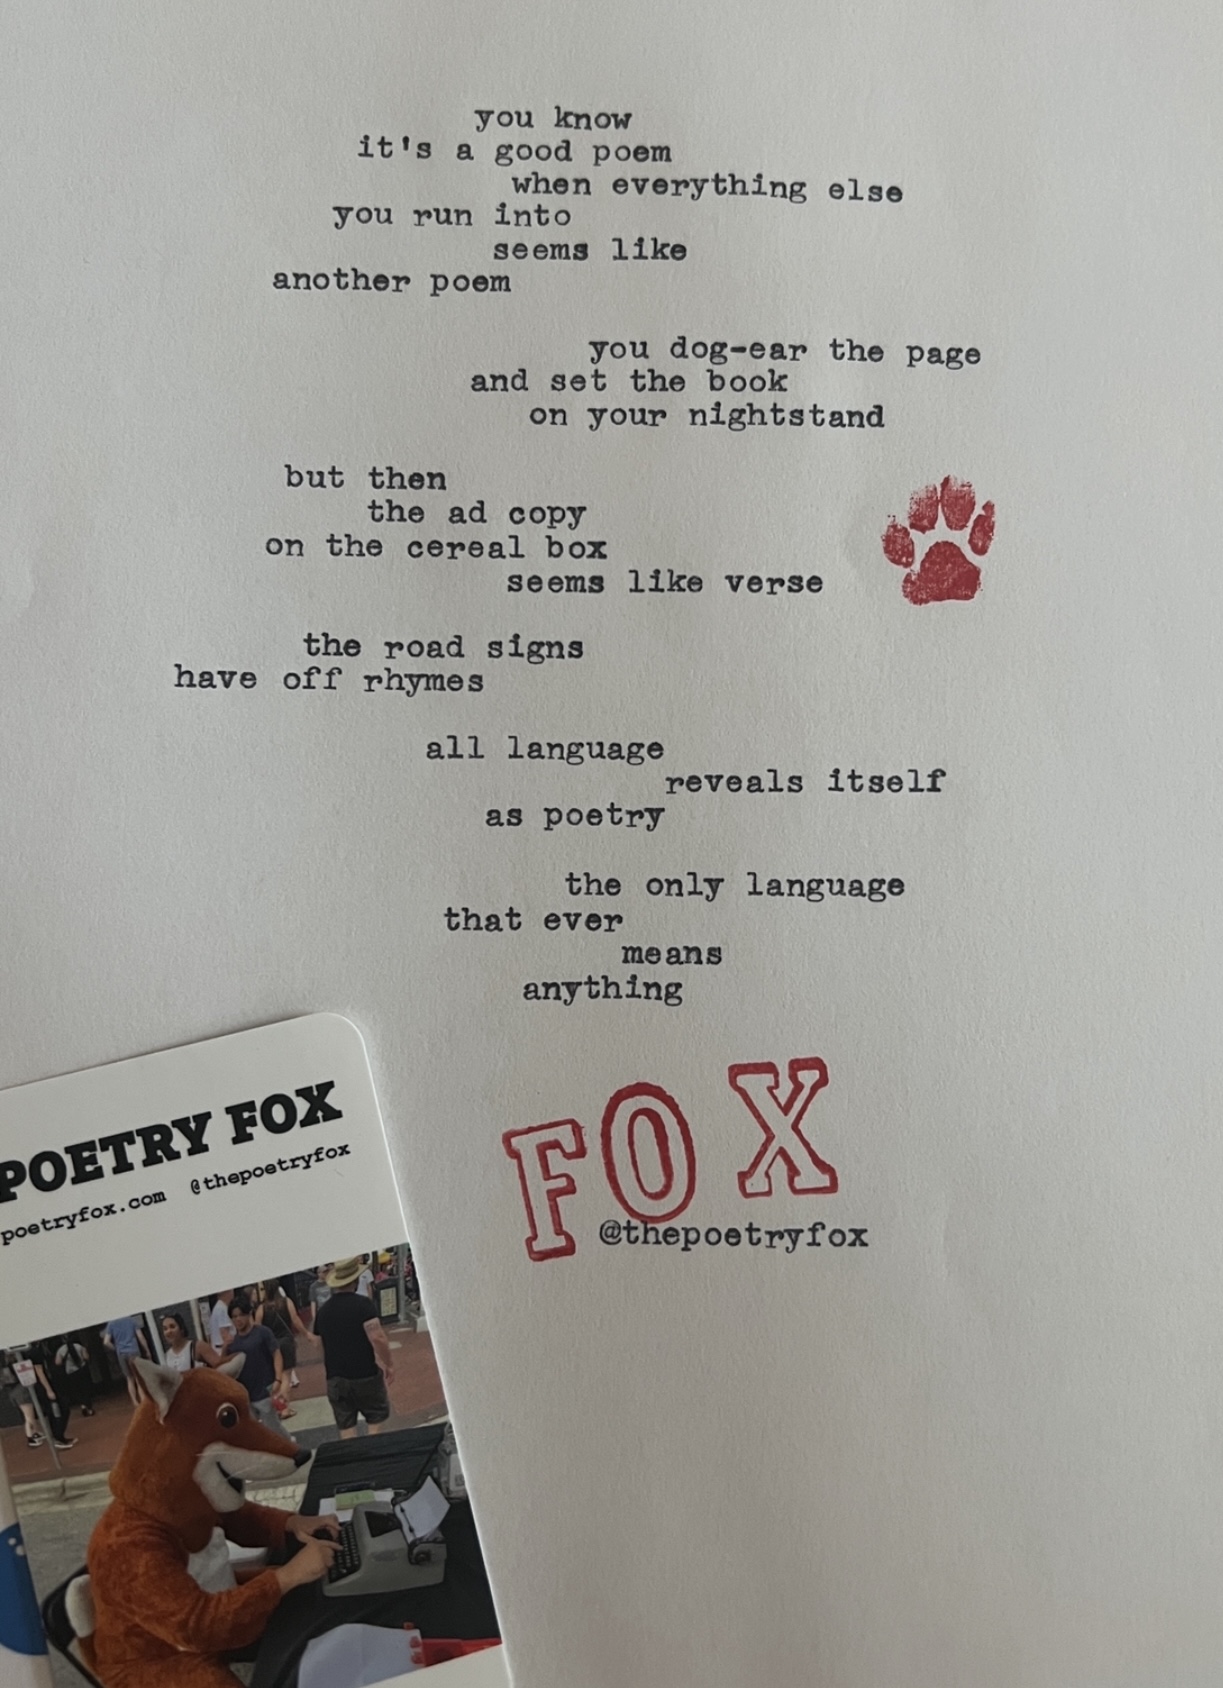 you know
it's a good poem
when everything else
you run into
seems like
another poem
you dog-ear the page
and set the book
on your nightstand
but then
the ad copy
on the cereal box
seems like verse
the road signs
have off rhymes
all language
reveals itself
as poetry
the only language
that ever
means
anything
FOX
@thepoetryfox
POETRY FOX
poetryfox.com @thepoetryfox